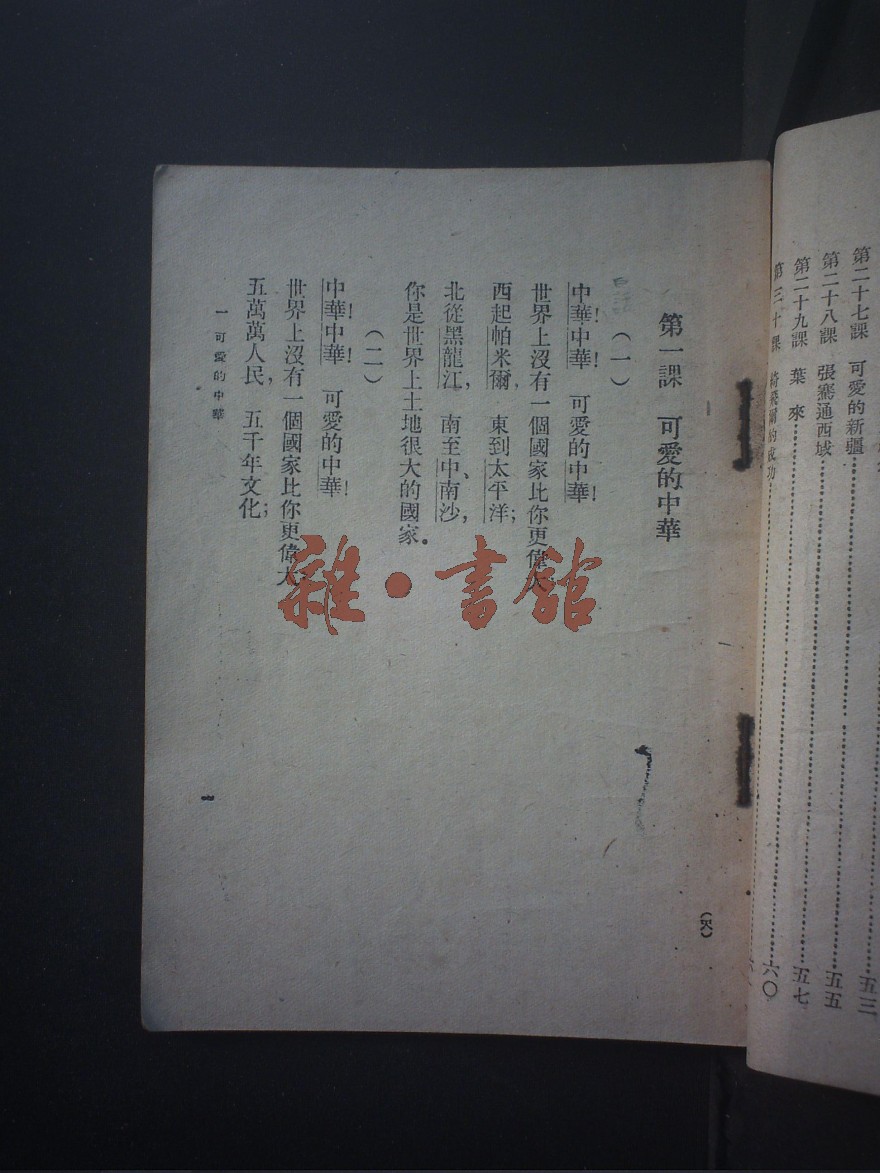 第二十七課　可愛的新疆……五三
第二十八課　張騫通西域……五五
第二十九課　葉來……五七
第三十課　　的成功……六〇
第一課　可愛的中華
（一）
中華！中華！　可愛的中華！
世界上沒有一個國家比你更偉大
西起帕米爾，　東到太平洋；
北從黑龍江，　南至中、南沙，
你是世界上土地很大的國家。
（二）
中華！中華！　可愛的中華！
世界上沒有一個國家比你更偉大
五萬萬人民，　五千年文化；
一　可愛的中華
雜·書館